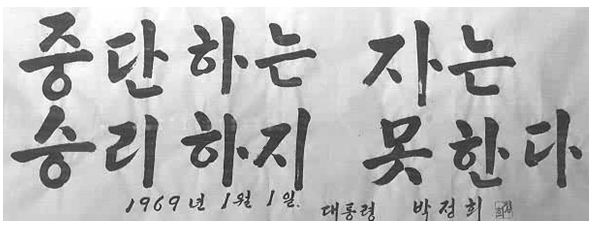 중단하는 자는
승리하지 못한다
1969년 1월 1일.
대통령 박정희